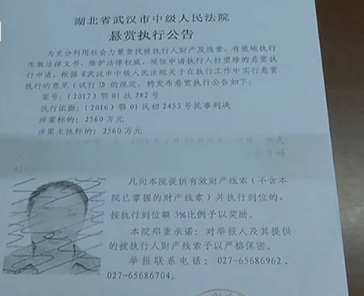 湖北省武汉市中级人民法院
悬赏执行公告
为充分利用社会力量查找被执行人财产及线索，有效地执行
生效法律文书，维护法律权威，现依申请执行人杜望珍的悬赏执
行申请，根据《武汉市中级人民法院关于在执行工作中实行悬赏
执行的意见（试行）》的规定，特发布悬赏执行公告如下：
案号：（2017）鄂01执282号
执行依据：（2016）鄂01民初2453号民事判决
涉案标的：2560万元
涉案未执标的：2560万元
凡向本院提供有效财产线索（不含本
院已掌握的财产线索）并执行到位的，
按执行到位额3%比例予以奖励。
本院郑重承诺：对举报人及其提供
的被执行人财产线索予以严格保密。
举报联系电话：027-65686962、
027-65686704。